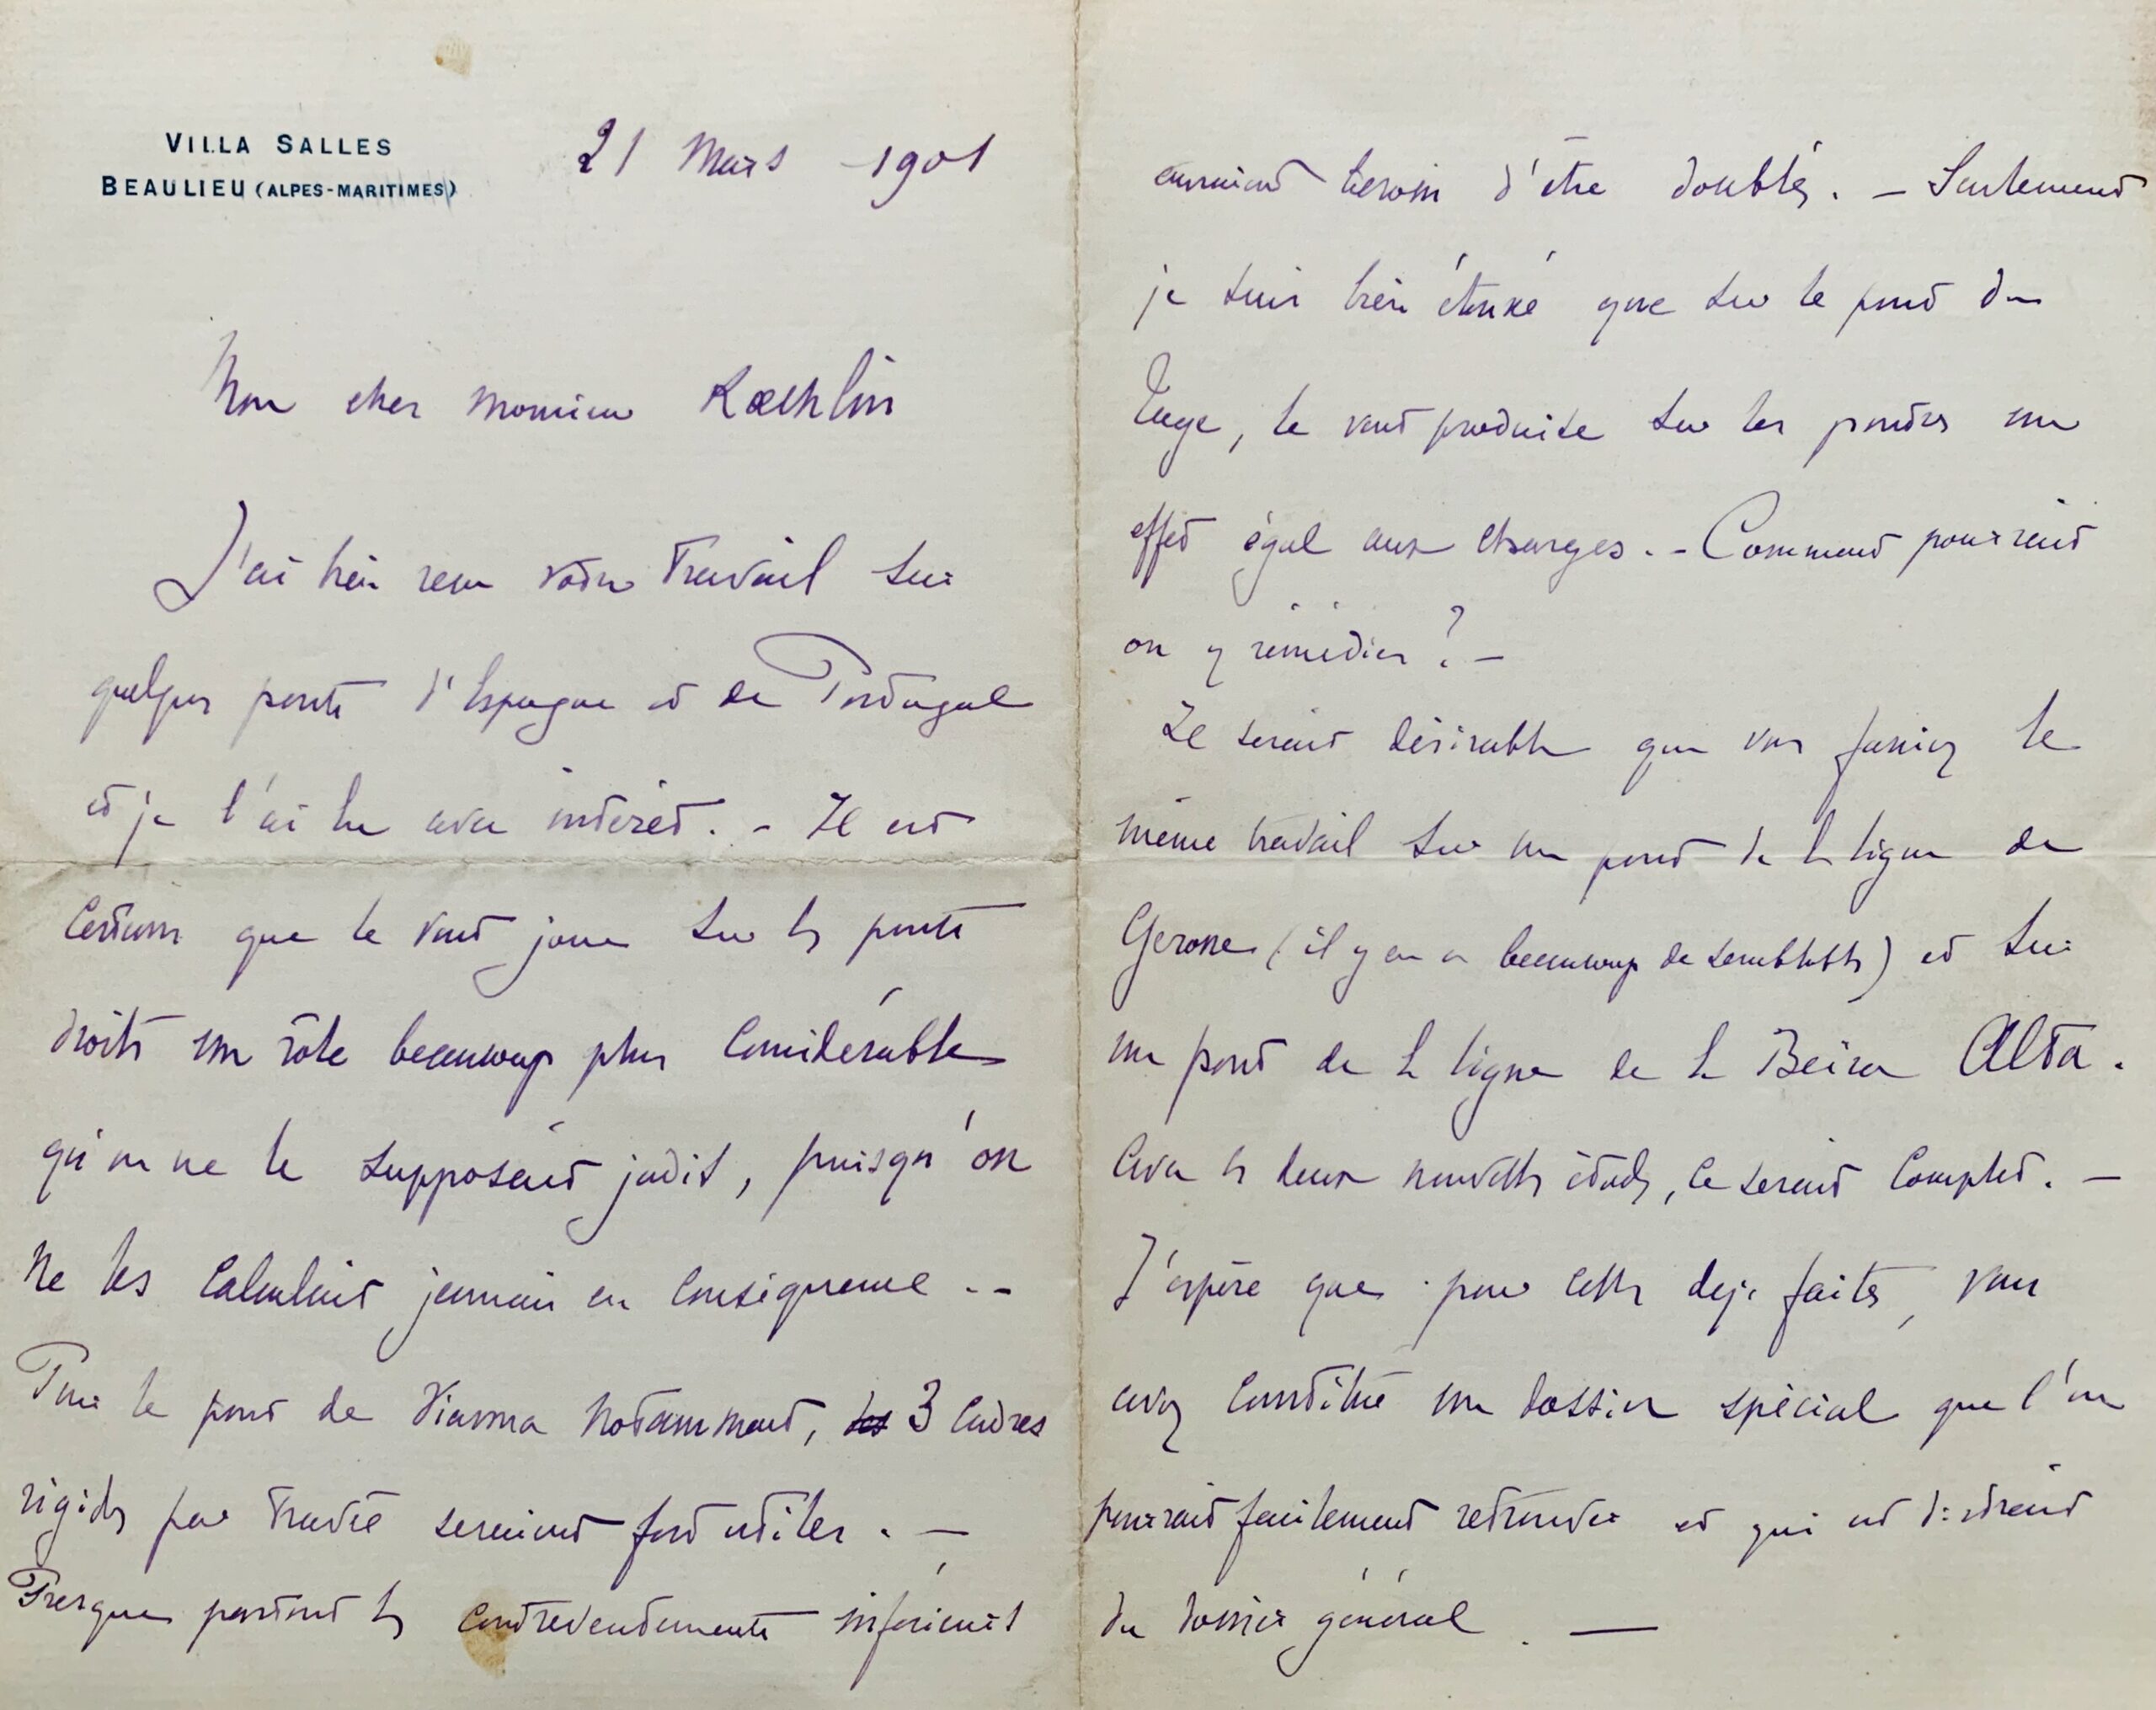 VILLA SALLES
BEAULIEU (ALPES-MARITIMES)
21 Mars 1901
Mon cher Monsieur Koechlin
J'ai bien reçu votre Travail sur
quelques ponts d'Espagne et de Portugal
et je l'ai lu avec intérêt. - Il est
certain que le vent joue sur les ponts
droits un rôle beaucoup plus considérable
qu'on ne le supposait jadis, puisqu'on
ne les calculait jamais en conséquence. -
Pour le pont de Vianna notamment, 3 cadres
rigides par travée seraient fort utiles. -
Presque partout les contreventements inférieurs
auraient besoin d'être doublés. - Seulement
je suis bien étonné que sur le pont du
Tage, le vent produise sur les poutres un
effet égal aux charges. - Comment pourrait
on y remédier ? -
Il serait désirable que vous fassiez le
même travail sur un pont de la ligne de
Gerone (il y en a beaucoup de semblables) et sur
un pont de la ligne de la Beira Alta.
Avec les deux nouvelles études, ce serait complet. -
J'espère que pour celles deja faites, vous
avez constitué un dossier spécial que l'on
pourrait facilement retrouver et qui est distrait
du dossier général. -